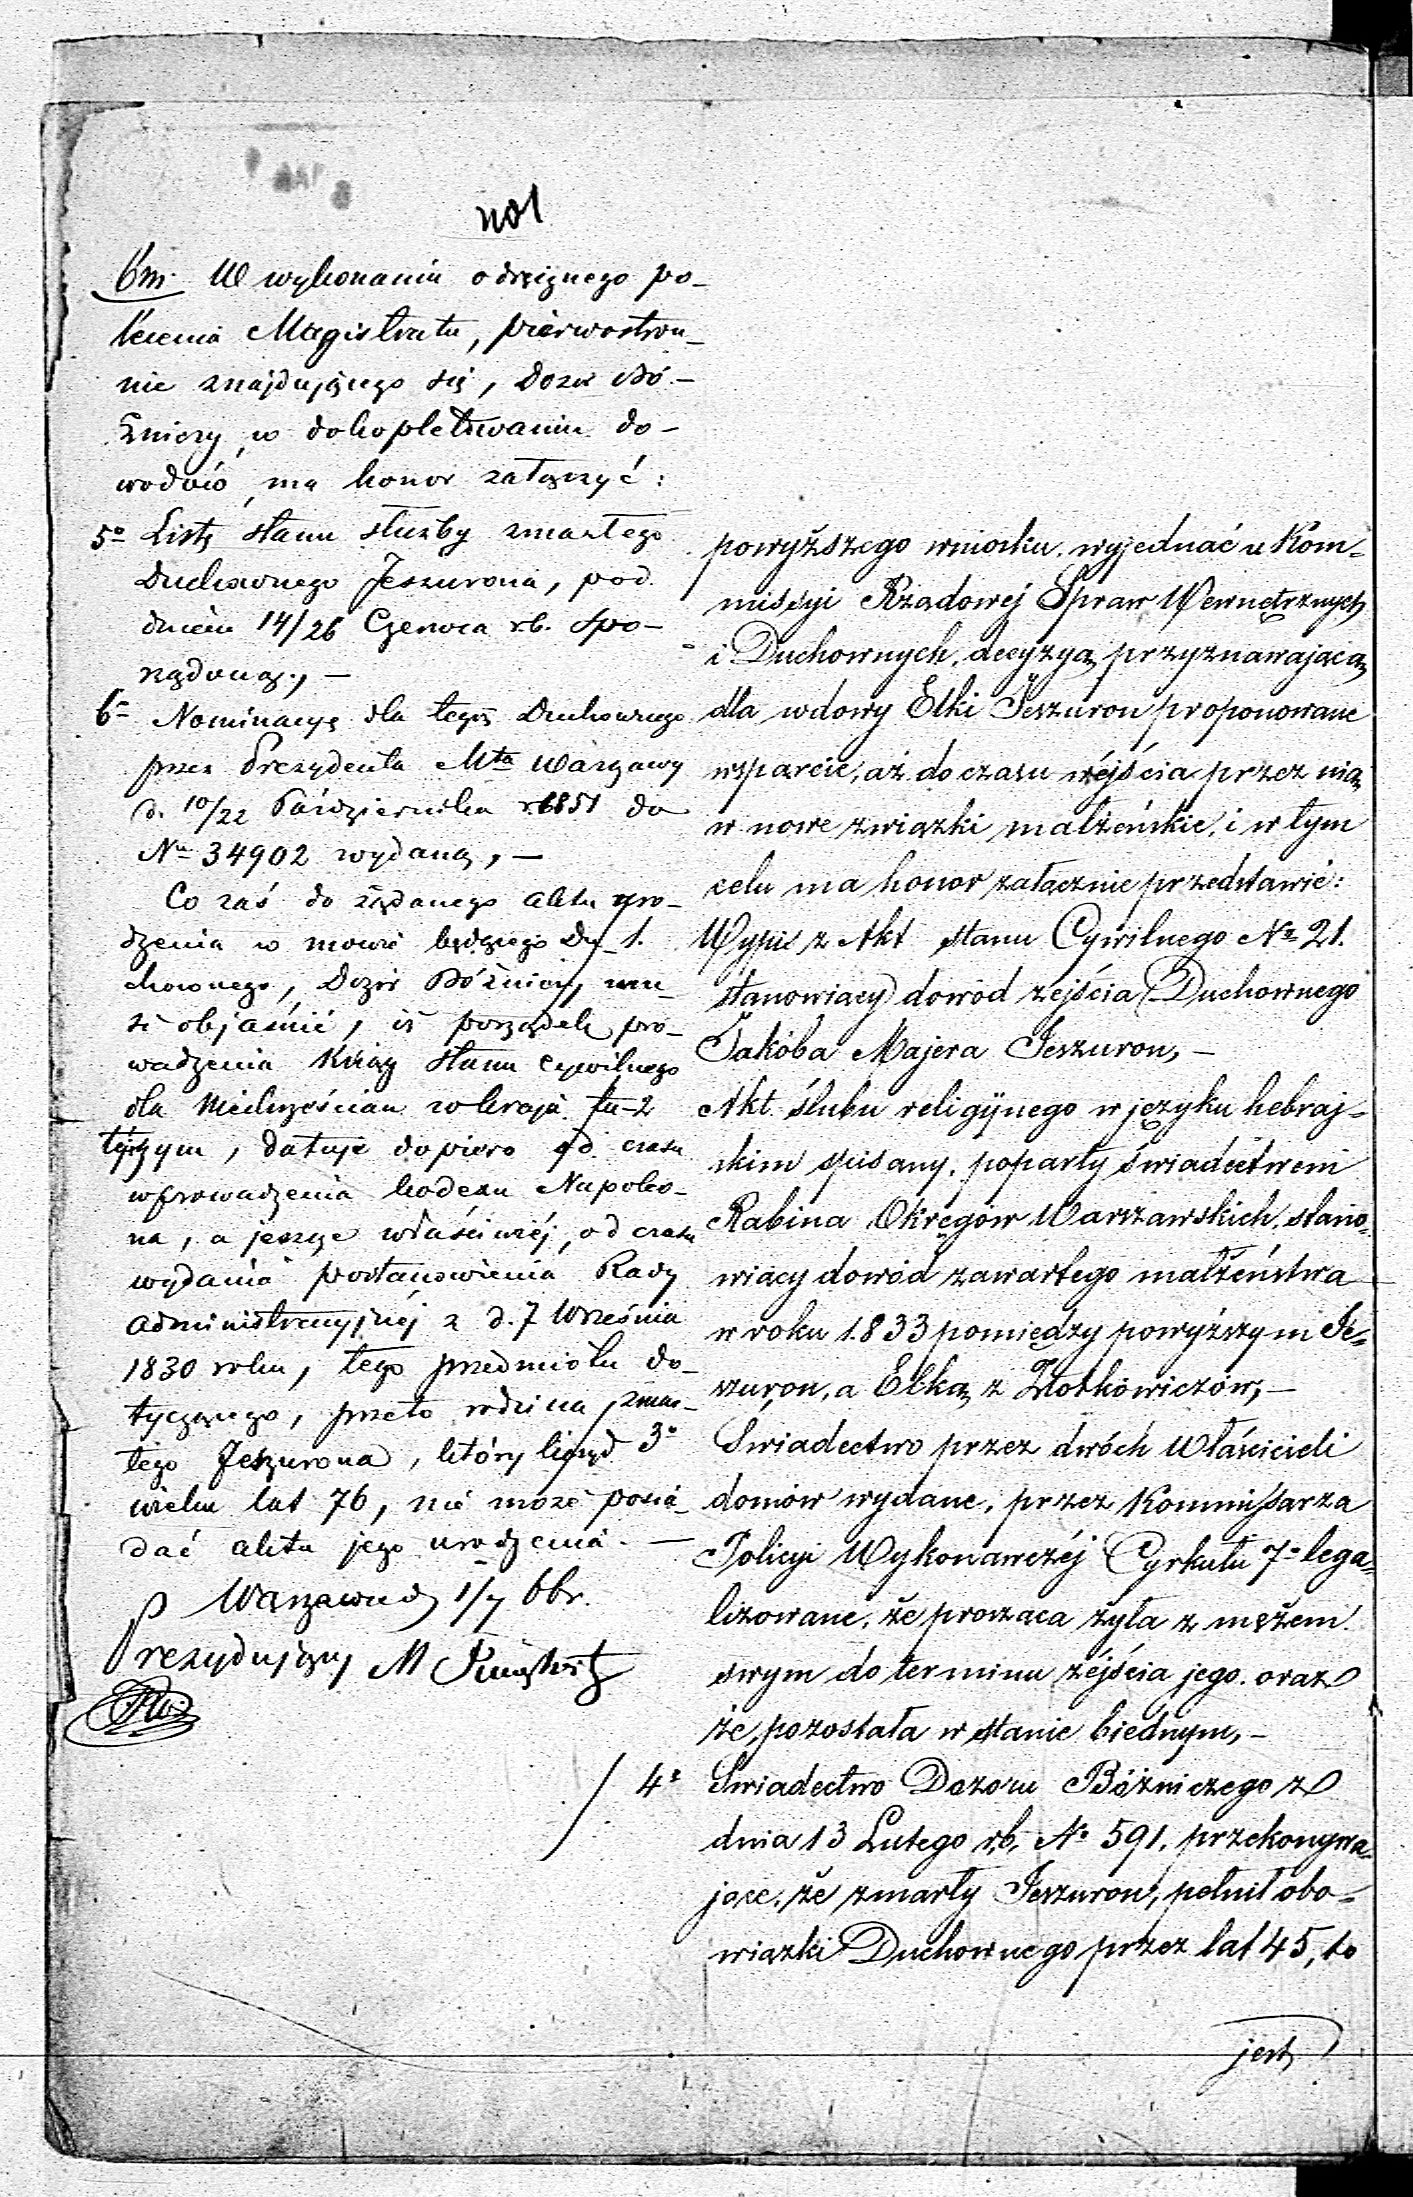 6m. W wykonaniu odręcznego po-
lecenia Magistratu, pierwostron-
nie znajdującego się, Dozór Bó-
żniczy, w dokopletowaniu do-
wodów, ma honor załączyć:
5o Listę stanu służby zmarłego
Duchownego Jeszurona, pod
dniem 14/26 Czerwca r.b. spo-
rządzoną, —
6o Nominacyę dla tegoż Duchownego
przez Prezydenta Mta Warszawy
d. 10/22 Października r. 1851 do
No 34902 wydaną, —
Co zaś do żądanego aktu uro-
dzenia w mowie będącego Du-
chownego, Dozór Bóźniczy, mu-
si objaśnić, iż porządek pro-
wadzenia Ksiąg stanu cywilnego
dla Niechrześcian w kraju tu-
tejszym, datuje dopiero od czasu
wprowadzenia kodexu Napoleo-
na, a jeszcze właściwiéj, od czasu
wydania postanowienia Rady
Administracyjnéj z d. 7 Września
1830 roku, tego przedmiotu do-
tyczącego, przeto rodzina zmar-
łego Jeszurona, który liczył
wieku lat 76, nie może posia-
dać aktu jego urodzenia. —
Warszawa d. 1/7 bbr.
Prezydujący M
powyższego wniosku, wyjednać u Kom-
missyi Rządowéj Spraw Wewnętrznych
i Duchownych, decyzyą, przyznawającą
dla wdowy Elki Jeszuron proponowane
wsparcie, aż do czasu wejścia przez nią
w nowe związki małżeńskie, i w tym
celu ma honor załącznie przedstawić:
1. Wypis z Akt stanu Cywilnego No 21.
stanowiący dowód zejścia Duchownego
Jakóba Majera Jeszuron, —
2 Akt ślubu religijnego w języku hebraj-
skim spisany, poparty świadectwem
Rabina Okręgów Warszawskich, stano-
wiący dowód zawartego małżeństwa
w roku 1833 pomiędzy powyższym Je-
szuron, a Elką z Złotkowiczów, —
3o Swiadectwo przez dwóch Właścicieli
domów wydane, przez Kommissarza
Policyi Wykonawczéj Cyrkułu 7o lega-
lizowane, że prosząca żyła z mężem
swym do terminu zéjścia jego, oraz
że pozostała w stanie biednym, —
4o Swiadectwo Dozoru Bóżniczego z
dnia 13 Lutego r.b. No 591, przekonywa-
jące, że zmarły Jeszuron, pełnił obo-
wiązki Duchownego przez lat 45, to
jest